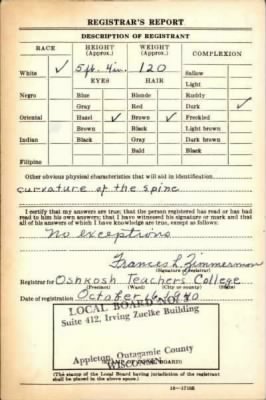 REGISTRAR'S REPORT
DESCRIPTION OF REGISTRANT
RACE HEIGHT (Approx.) WEIGHT (Approx.) COMPLEXION
White ✓ 5 ft. 4 in. 120 Sallow
EYES HAIR Light
Negro Blue Blonde Ruddy
Gray Red Dark ✓
Oriental Hazel ✓ Brown ✓ Freckled
Brown Black Light brown
Indian Black Gray Dark brown
Bald Black
Filipino
Other obvious physical characteristics that will aid in identification
curvature of the spine
I certify that my answers are true; that the person registered has read or has had
read to him his own answers; that I have witnessed his signature or mark and that
all of his answers of which I have knowledge are true, except as follows:
No exceptions
Frances L. Zimmerman
(Signature of registrar)
Registrar for Oshkosh Teachers College
(Precinct) (Ward) (City or county) (State)
Date of registration October 16, 1940
LOCAL BOARD NO.
Suite 412, Irving Zuelke Building
Appleton, Outagamie County
WISCONSIN
(STAMP OF LOCAL BOARD)
(The stamp of the Local Board having jurisdiction of the registrant
shall be placed in the above space.)